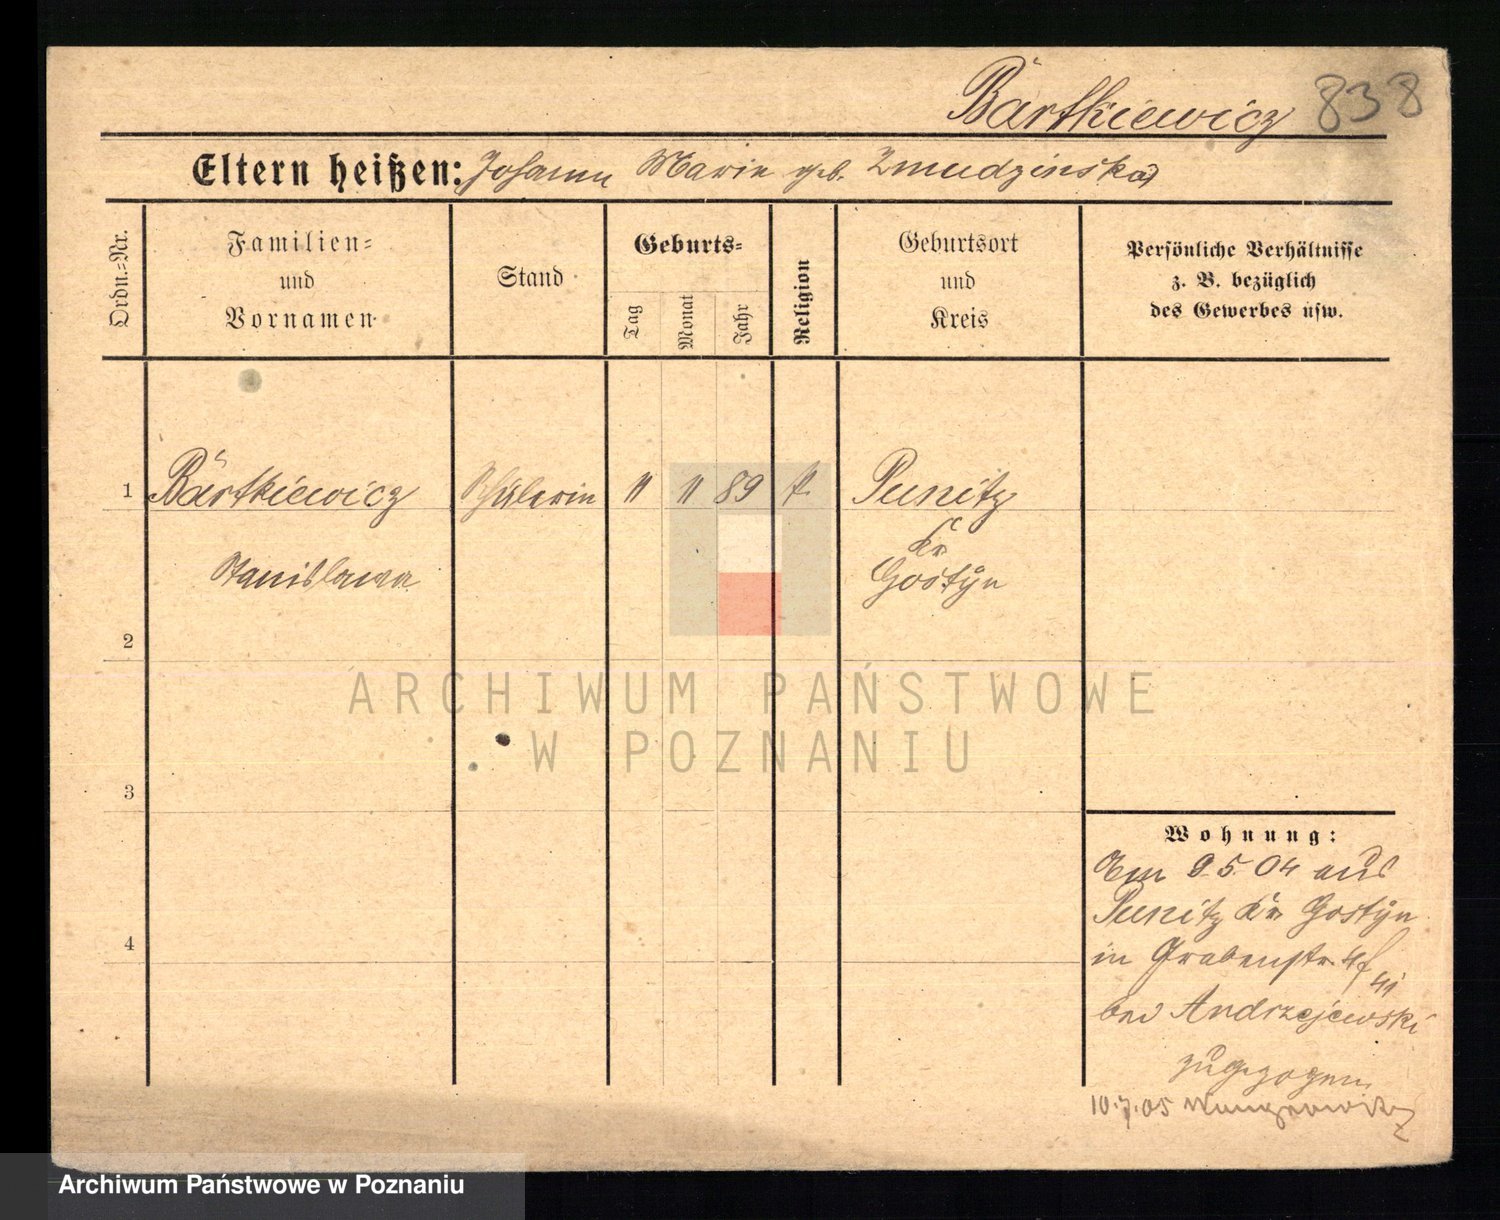 Bartkiewicz 838
Eltern heißen: Johann Marie geb. Zmudzinska
Ordn.-Nr.
Familien-
und
Vornamen
Stand
Geburts-
Tag
Monat
Jahr
Religion
Geburtsort
und
Kreis
Persönliche Verhältnisse
z. B. bezüglich
des Gewerbes usw.
1 Bartkiewicz Schülerin 11 11 89 k. Punitz
Kr
Stanislawa Gostyn
2
3
4
ARCHIWUM PAŃSTWOWE
W POZNANIU
Wohnung:
Am 9.5.04 aus
Punitz Kr Gostyn
in Grabenstr.
bei Andrzejewski
zugezogen
10.7.05
Archiwum Państwowe w Poznaniu